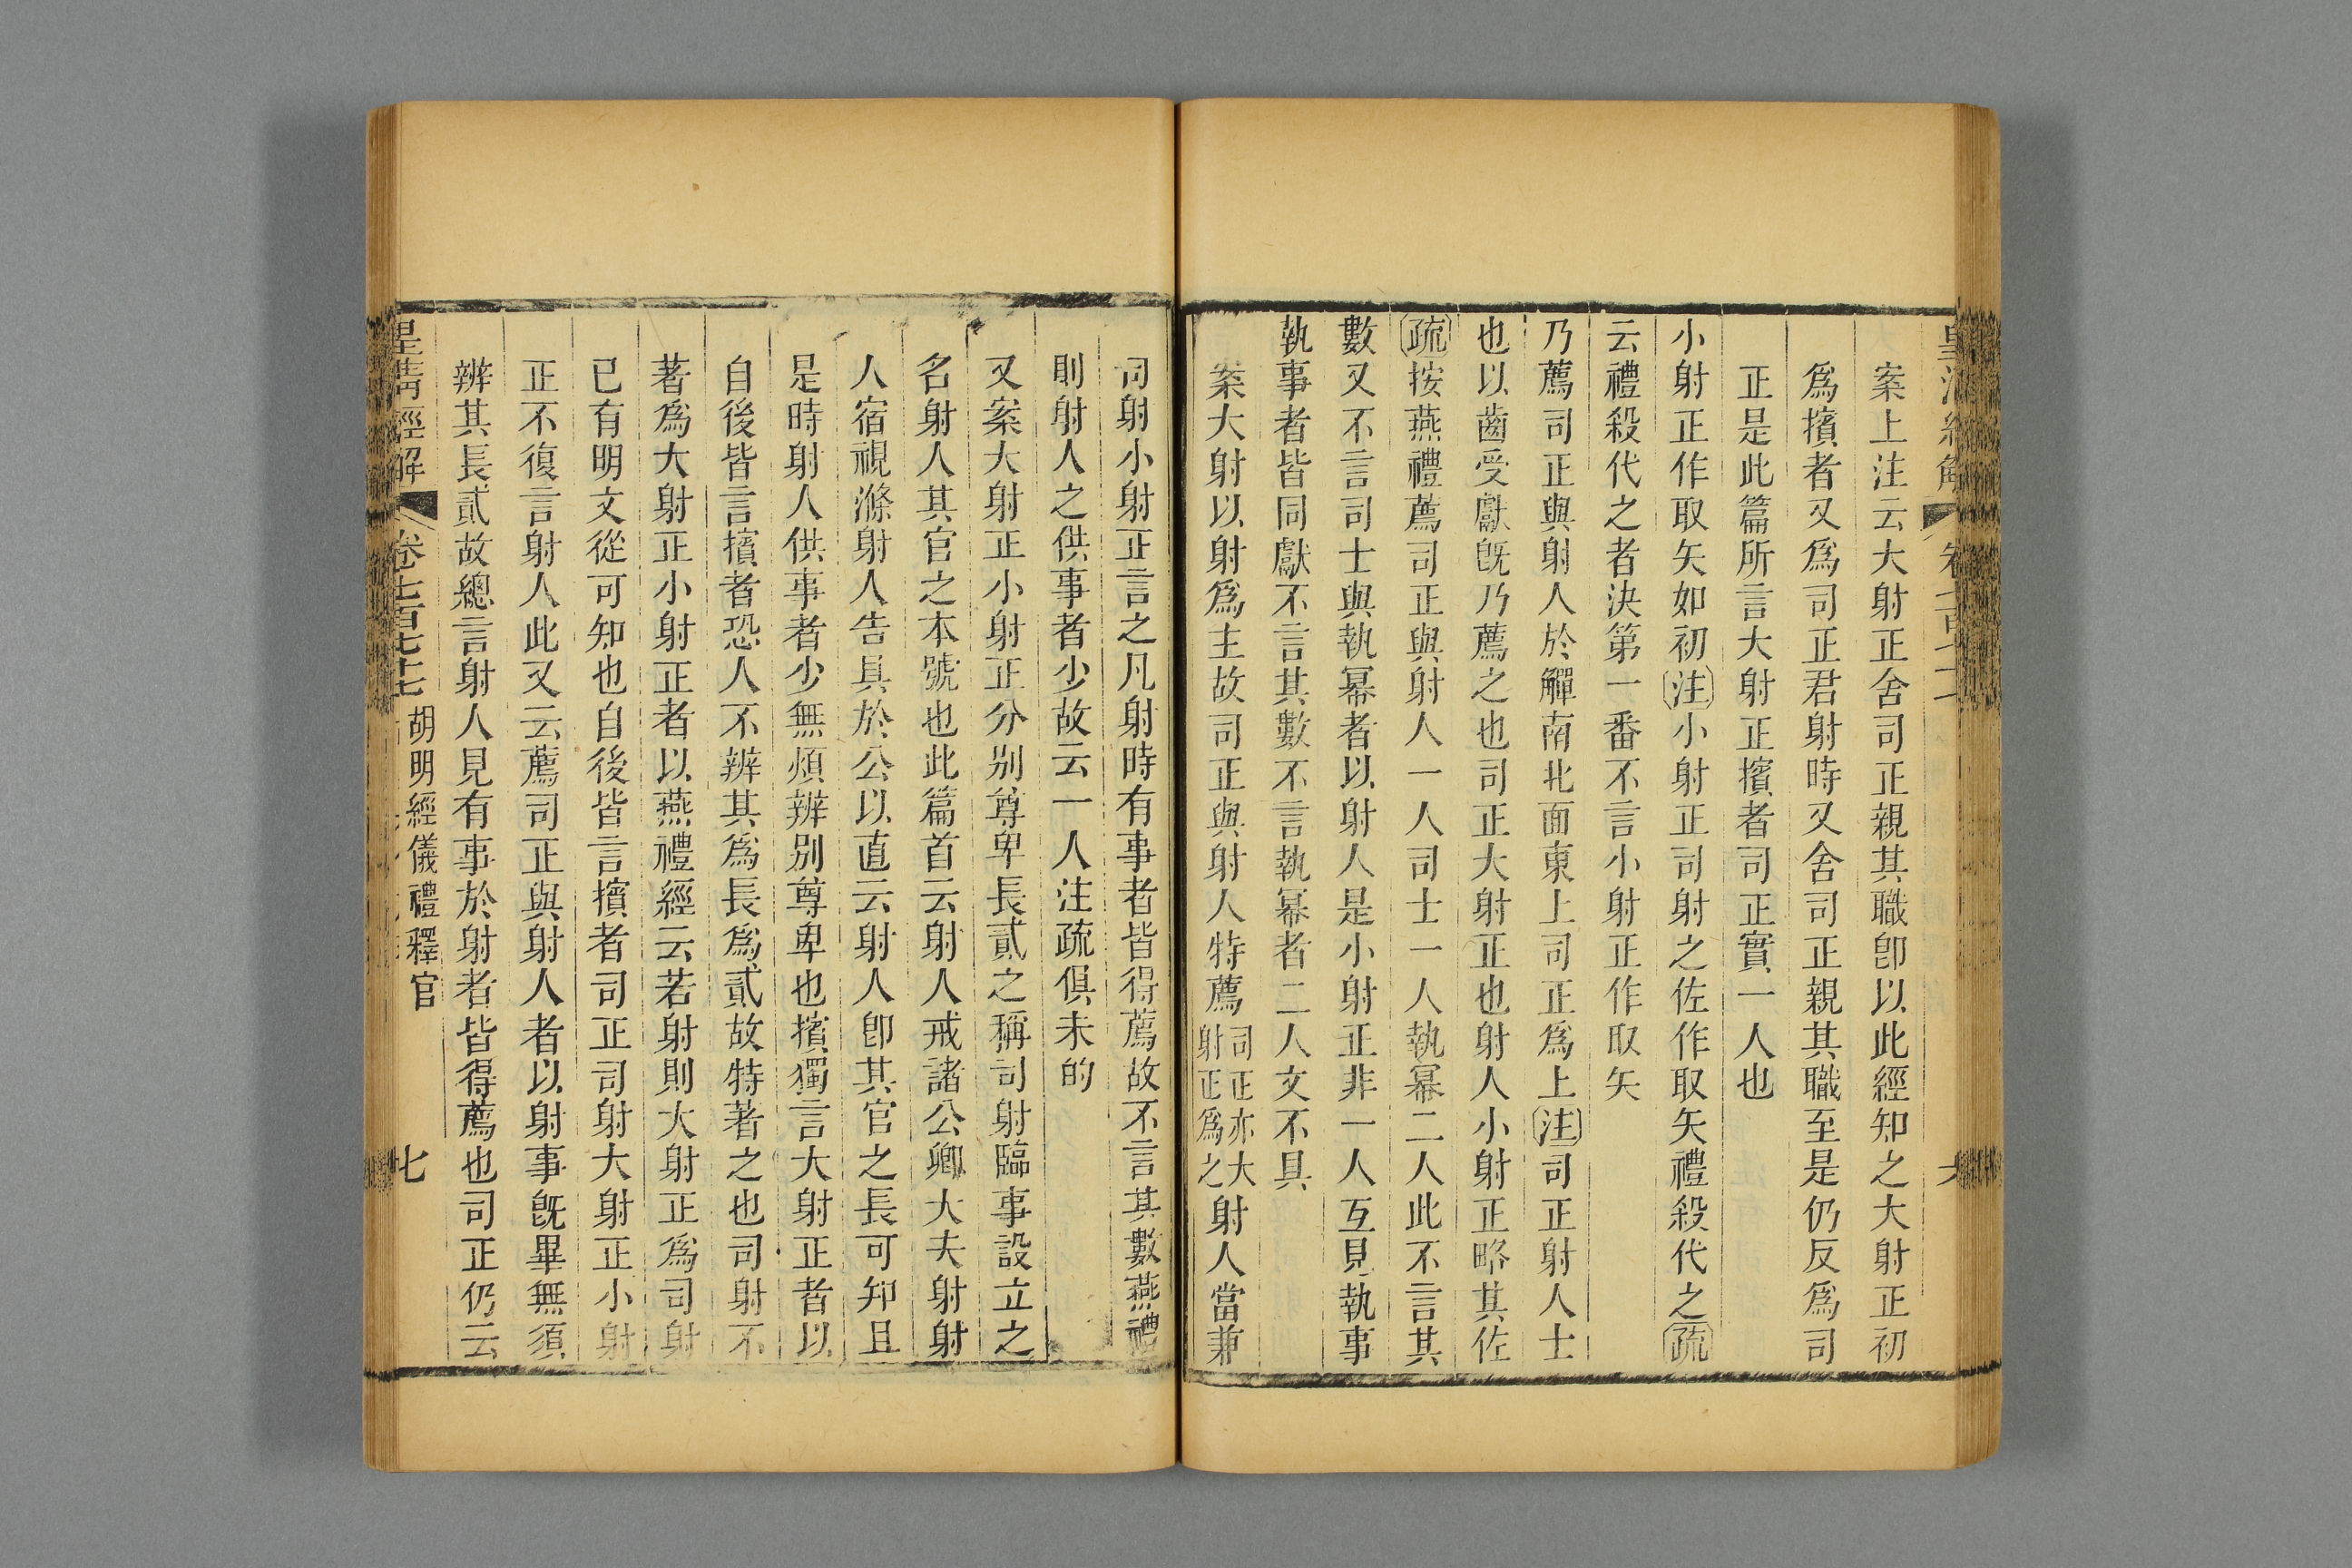 案上注云大射正舍司正親其職卽以此經知之大射正初
爲擯者又爲司正君射時又舍司正親其職至是仍反爲司
正是此篇所言大射正擯者司正實一人也
小射正作取矢如初注小射正司射之佐作取矢禮殺代之疏
云禮殺代之者決第一番不言小射正作取矢
乃薦司正與射人於觶南北面東上司正爲上注司正射人士
也以齒受獻旣乃薦之也司正大射正也射人小射正略其佐
疏按燕禮薦司正與射人一人司士一人執冪二人此不言其
數又不言司士與執冪者以射人是小射正非一人互見執事
執事者皆同獻不言其數不言執冪者二人文不具
案大射以射爲主故司正與射人特薦司正亦大射正爲之射人當兼
司射小射正言之凡射時有事者皆得薦故不言其數燕禮
則射人之供事者少故云一人注疏俱未的
又案大射正小射正分別尊卑長貳之稱司射臨事設立之
名射人其官之本號也此篇首云射人戒諸公卿大夫射射
人宿視滌射人告具於公以直云射人卽其官之長可知且
是時射人供事者少無煩辨別尊卑也擯獨言大射正者以
自後皆言擯者恐人不辨其爲長爲貳故特著之也司射不
著爲大射正小射正者以燕禮經云若射則大射正爲司射
已有明文從可知也自後皆言擯者司正司射大射正小射
正不復言射人此又云薦司正與射人者以射事旣畢無須
辨其長貳故總言射人見有事於射者皆得薦也司正仍云
皇淸經解 卷七百七十七 胡明經儀禮釋官 七